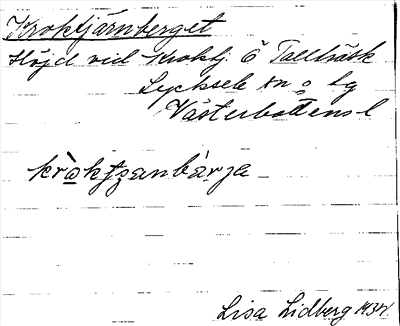 Kroktjärnberget
Höjd vid Kroktj. Ö Tallträsk
Lycksele sn o lg
Västerbottens l
Lisa Lidberg 1934.